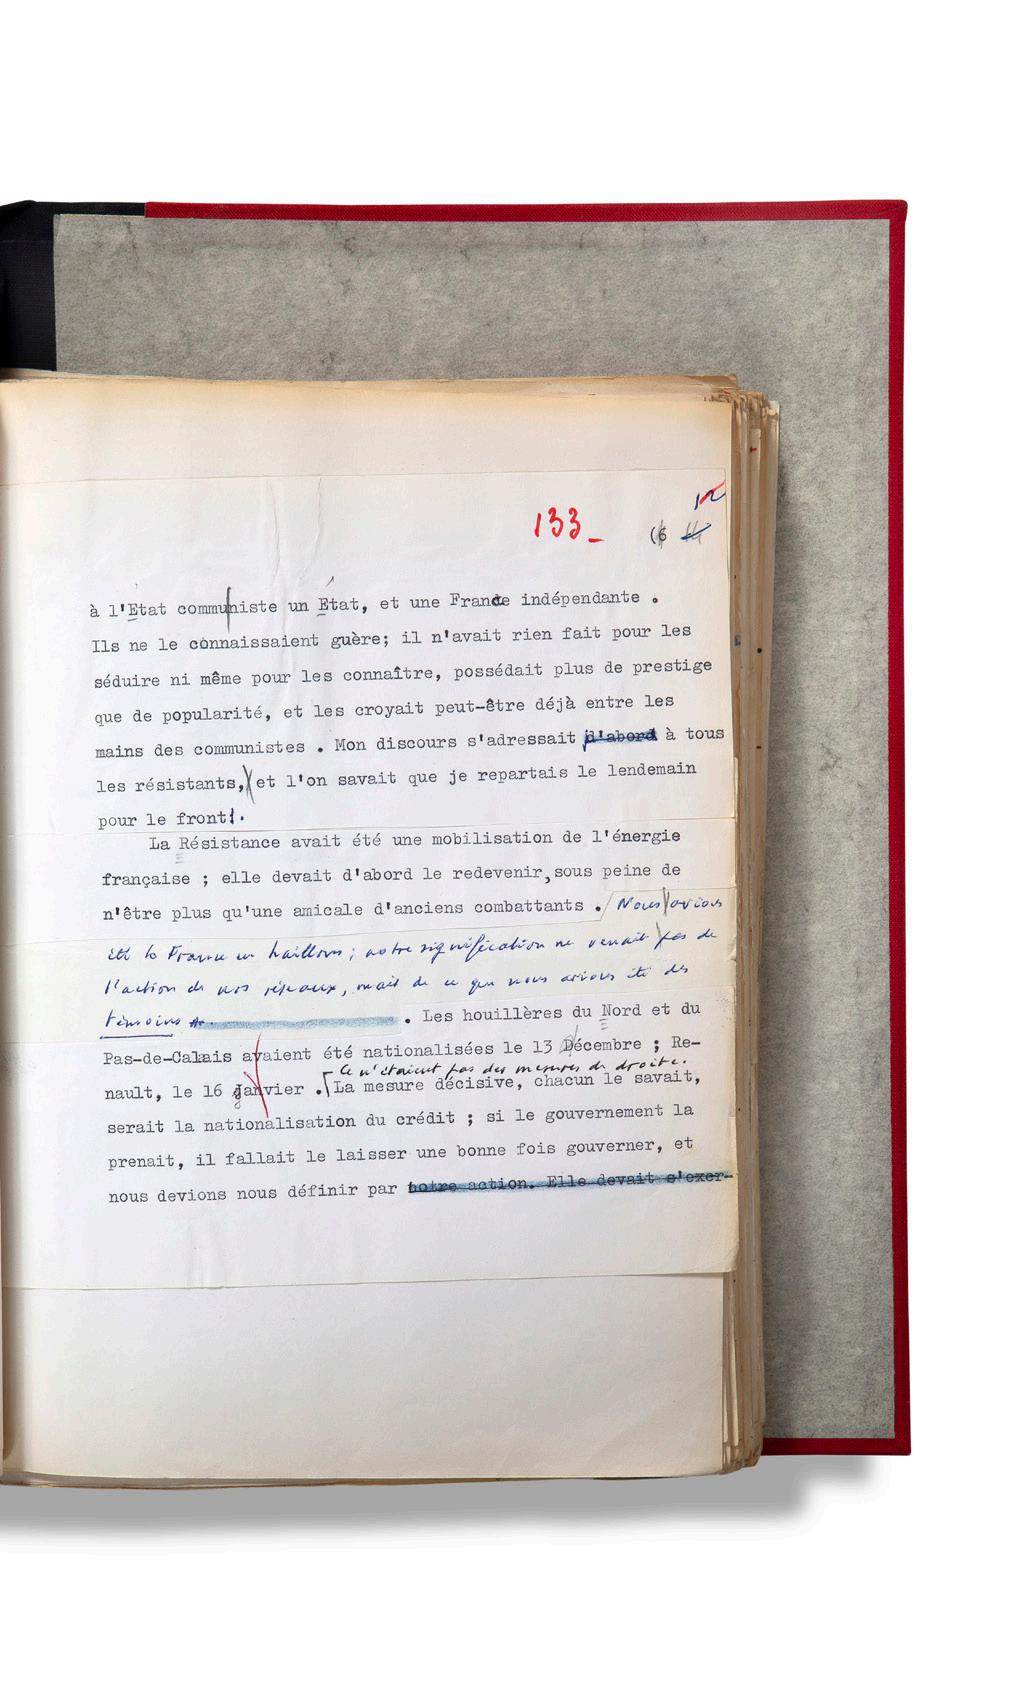 12
133_ (6
à l'Etat communiste un Etat, et une France indépendante .
Ils ne le connaissaient guère; il n'avait rien fait pour les
séduire ni même pour les connaître, possédait plus de prestige
que de popularité, et les croyait peut-être déjà entre les
mains des communistes . Mon discours s'adressait d'abord à tous
les résistants, et l'on savait que je repartais le lendemain
pour le front.
La Résistance avait été une mobilisation de l'énergie
française ; elle devait d'abord le redevenir, sous peine de
n'être plus qu'une amicale d'anciens combattants . Nous avions
été la France en haillons; notre signification ne venait pas de
l'action de nos réseaux, mais de ce que nous avions été des
témoins . Les houillères du Nord et du
Pas-de-Calais avaient été nationalisées le 13 Décembre ; Re-
Ce n'étaient pas des mesures de droite.
nault, le 16 janvier . La mesure décisive, chacun le savait,
serait la nationalisation du crédit ; si le gouvernement la
prenait, il fallait le laisser une bonne fois gouverner, et
nous devions nous définir par notre action. Elle devait s'exer-